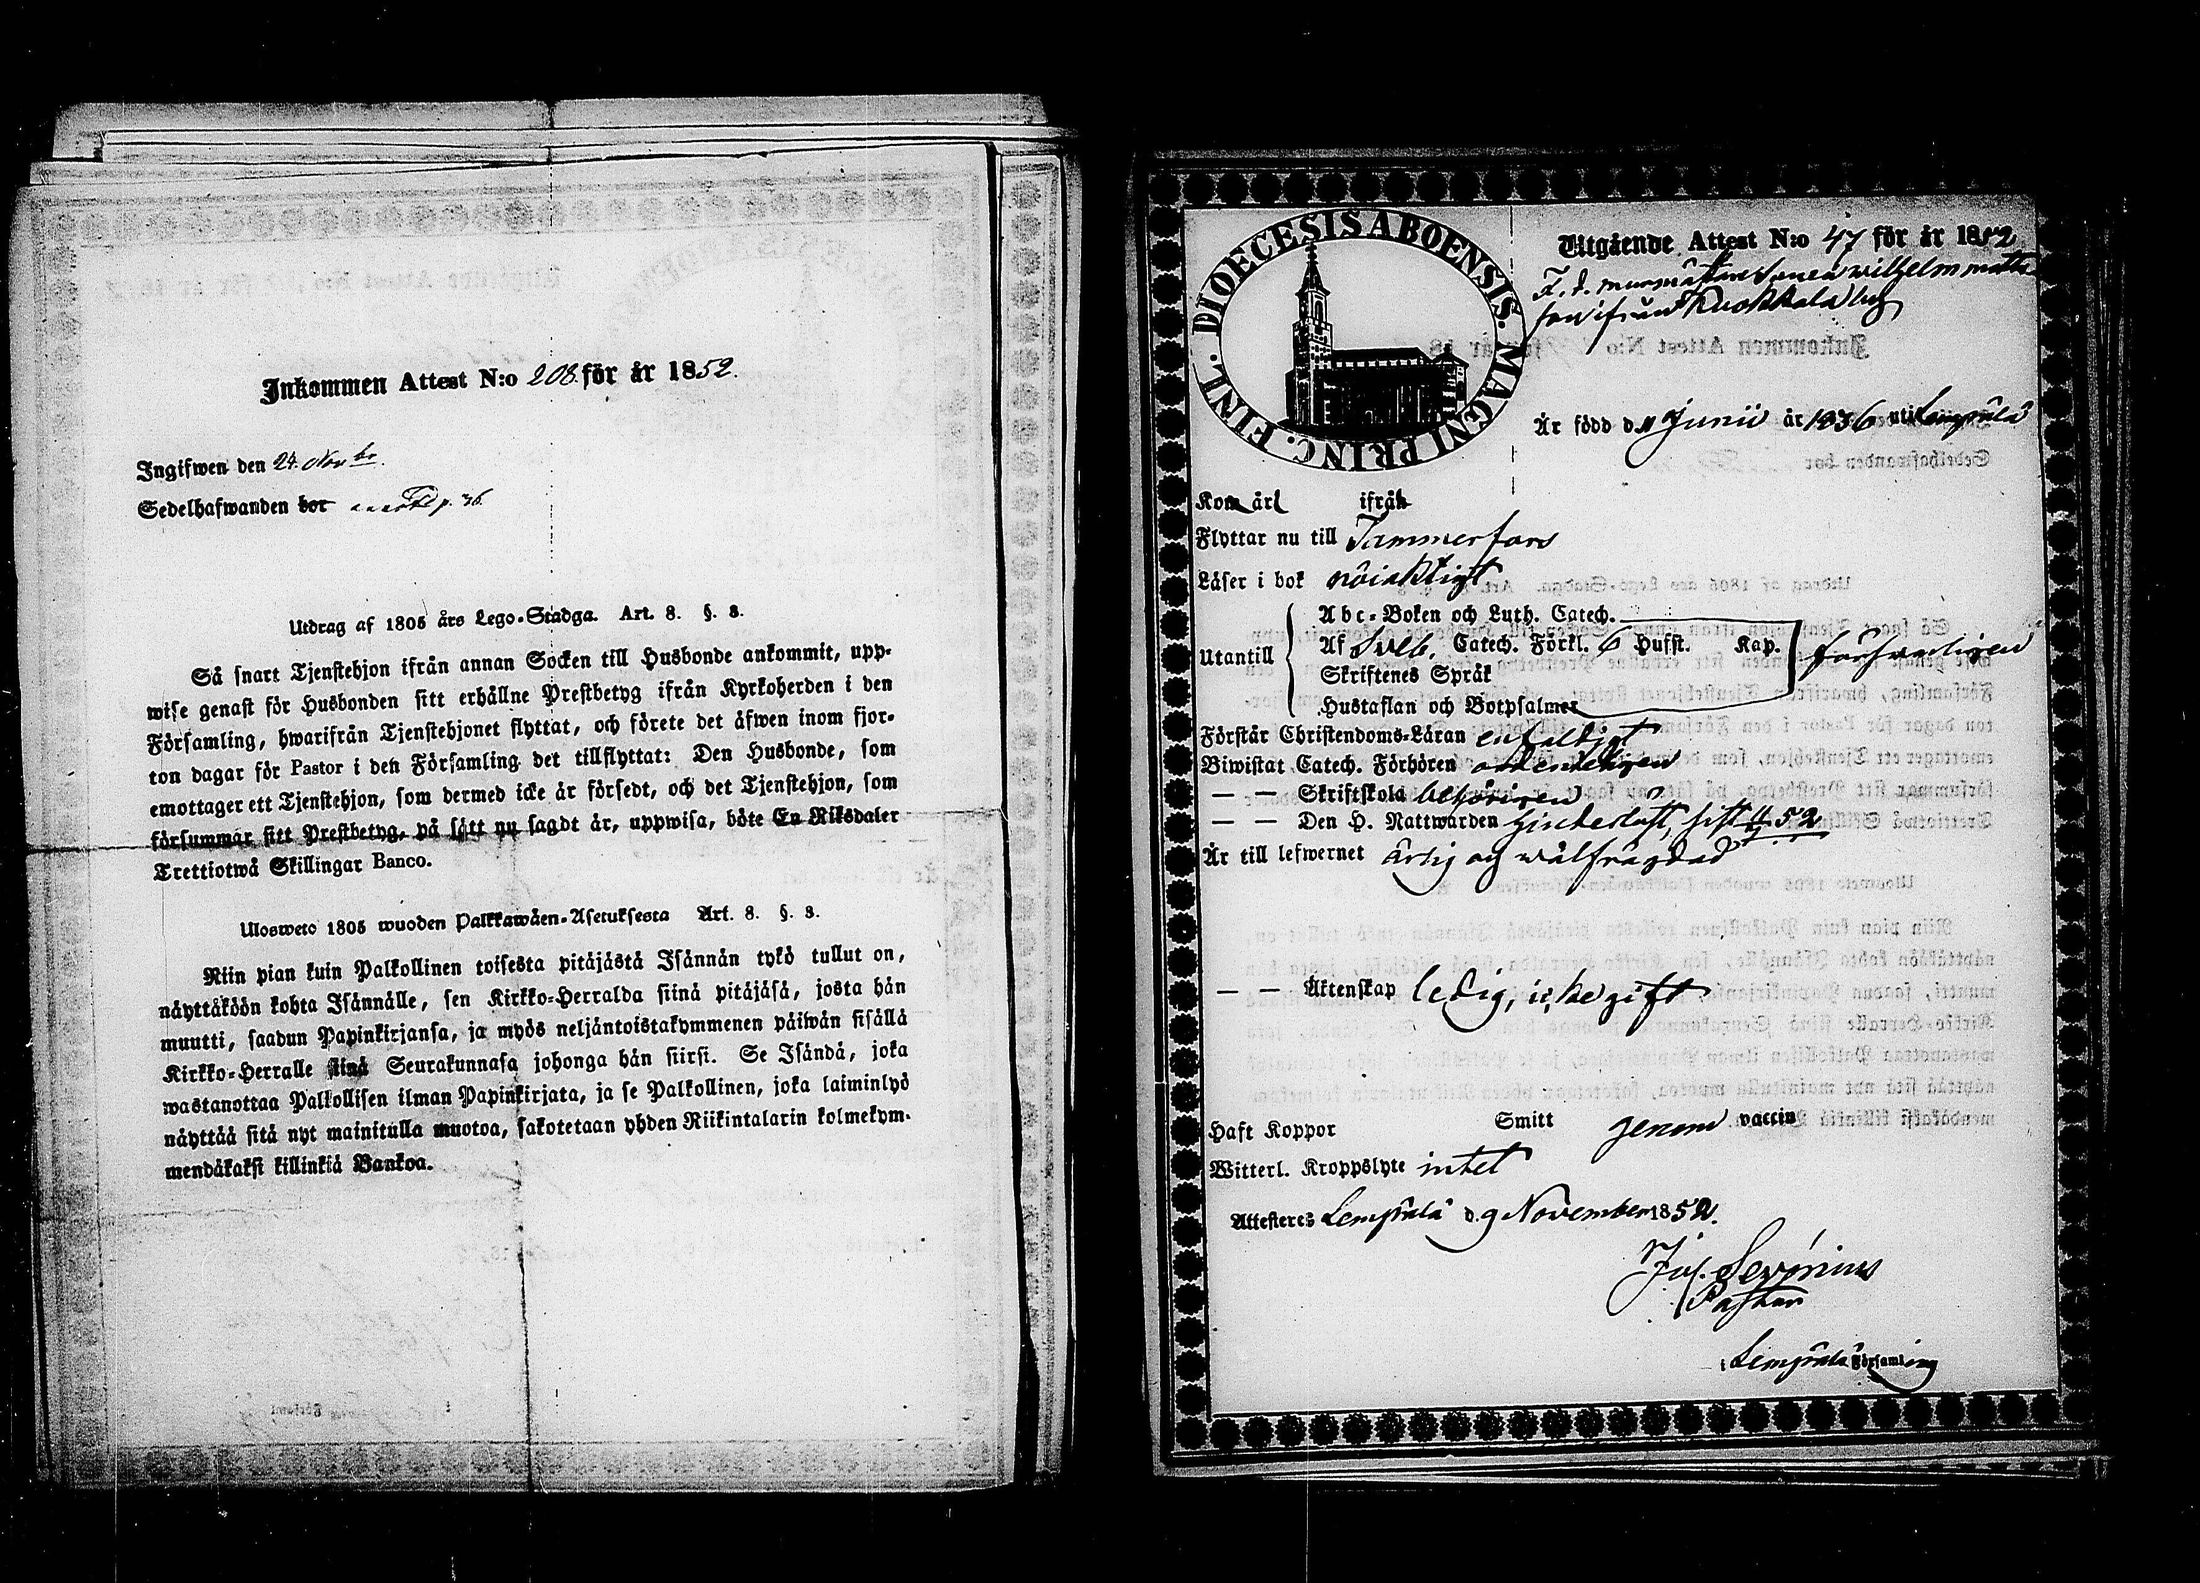 Inkommen Attest N:o 208. för år 1852.
Ingifwen den 24. Novbr.
Sedelhafwanden bor p. 36.
Utdrag af 1805 års Lego-Stadga. Art. 8. §. 3.
Så snart Tjenstehjon ifrån annan Socken till Husbonde ankommit, upp-
wise genast för Husbonden sitt erhållne Prestbetyg ifrån Kyrkoherden i den
Församling, hwarifrån Tjenstehjonet flyttat, och förete det äfwen inom fjor-
ton dagar för Pastor i den Församling det tillflyttat: Den Husbonde, som
emottager ett Tjenstehjon, som dermed icke är försedt, och det Tjenstehjon, som
försummar sitt Prestbetyg, på sätt nu sagdt är, uppwisa, böte En Riksdaler
Trettiotwå Skillingar Banco.
Ulosweto 1805 wuoden Palkkawäen-Asetuksesta Art. 8. §. 3.
Niin pian kuin Palkollinen toisesta pitäjästä Isännän tykö tullut on,
näyttäköön kohta Isännälle, sen Kirkko-Herralda siinä pitäjäsä, josta hän
muutti, saadun Papinkirjansa, ja myös neljäntoistakymmenen päiwän sisällä
Kirkko-Herralle siinä Seurakunnasa johonga hän siirsi. Se Isändä, joka
wastanottaa Palkollisen ilman Papinkirjata, ja se Palkollinen, joka laiminlyö
näyttää sitä nyt mainitulla muotoa, sakotetaan yhden Riikintalarin kolmekym-
mendäkaksi killinkiä Bankoa.
DIOECESIS ABOENSIS. MAGNI PRINC. FINL.
Utgående Attest N:o 47 för år 1852
F. d. wilhelm matts
son ifrån Kuokkala by
Är född d. 11 Junii år 1836 uti Lempälä
Kom år ifrån
Flyttar nu till Tammerfors
Läser i bok nöiaktigt
Abc-Boken och Luth. Catech.
Utantill Af Sveb. Catech. Förkl. 6 Hufst. Kap. försvarligen
Skriftenes Språk
Hustaflan och Botpsalmer
Förstår Christendoms-Läran enfaldigt
Biwistat Catech. Förhören ordentligen
— — Skriftskola behörigen
— — Den H. Nattwarden sist 52
Är till lefwernet ärlig och wälfrägdad
— — Äktenskap ledig, icke gift
Haft Koppor Smitt genom vaccin
Witterl. Kroppslyte intet
Attesteres Lempälä d. 9 November 1852.
Jos. Serenius
Pastor
i Lempälä Församling